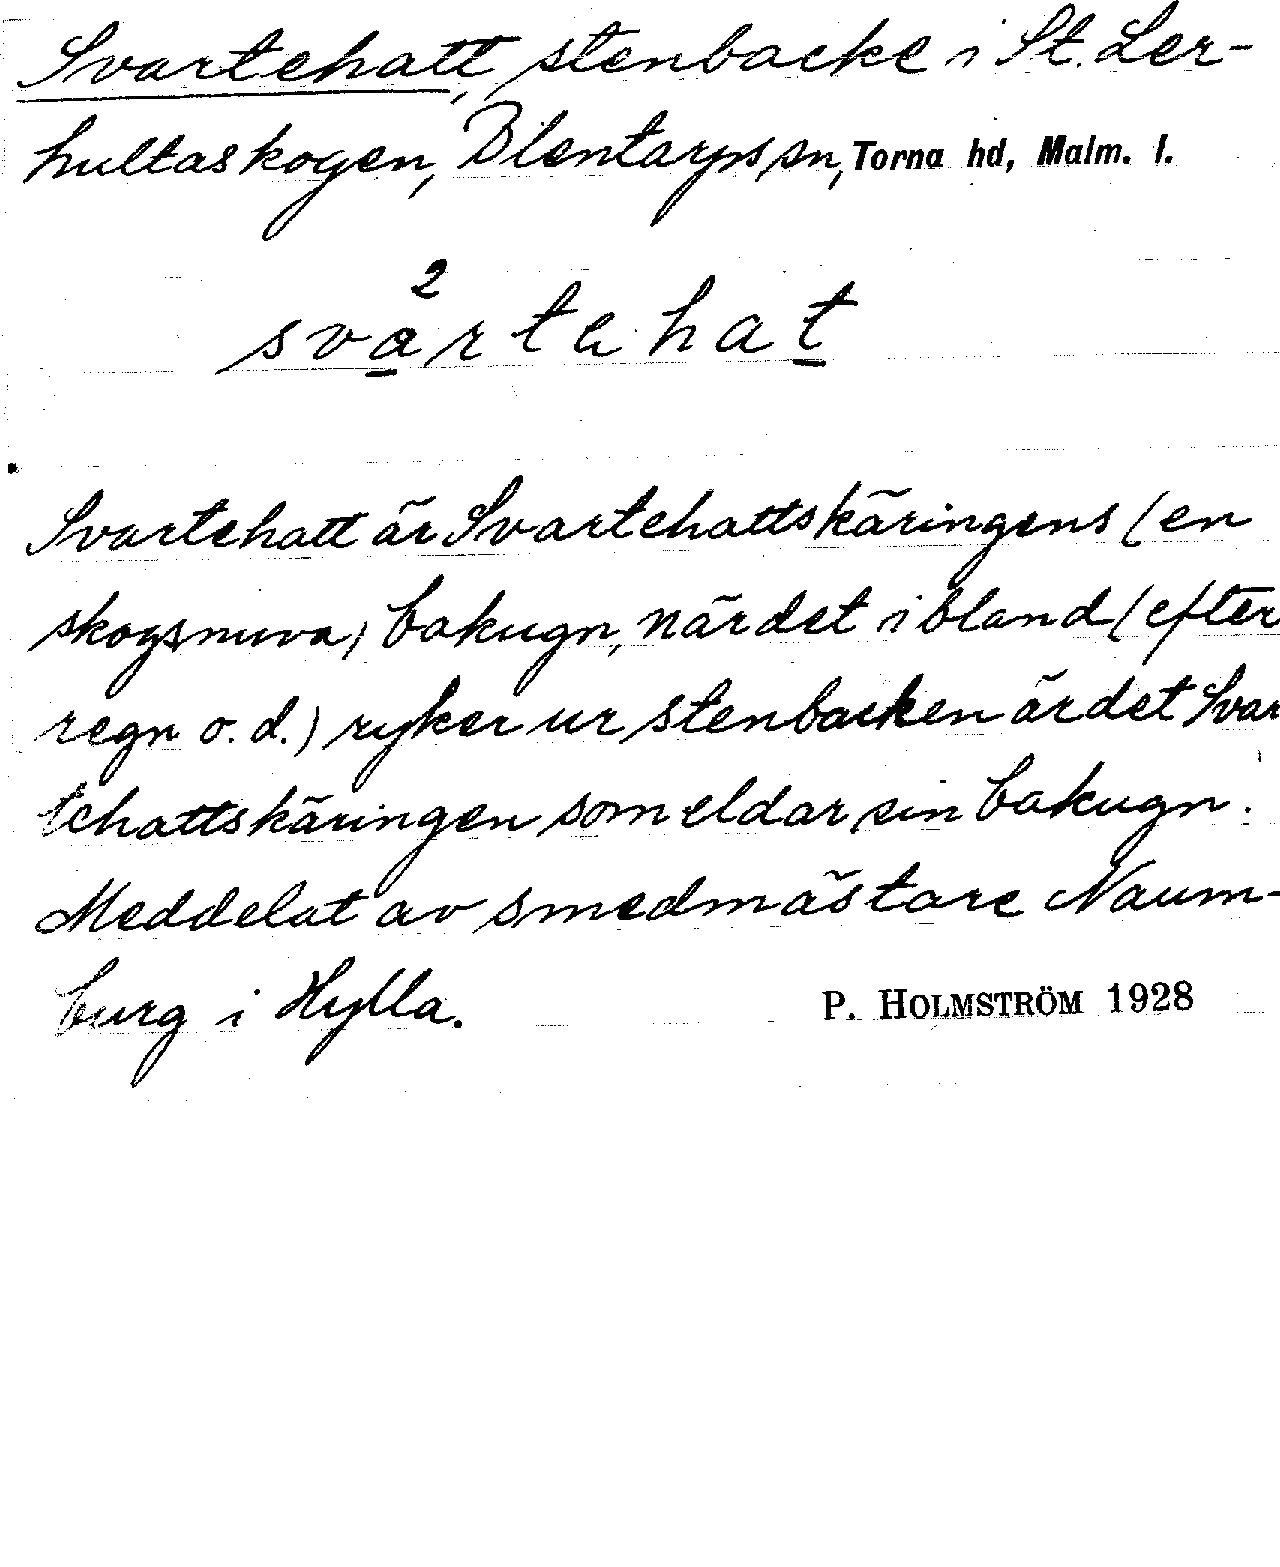 Svartehatt, stenbacke i St. Ler-
hultaskogen, Blentarps sn, Torna hd, Malm. l.
2
svartehat
Svartehatt är Svartehattskäringens (en
skogsnuva) bakugn, när det ibland (efter
regn o.d.) ryker ur stenbacken är det Svar
tehattskäringen som eldar sin bakugn.
Meddelat av smedmästare Naum-
burg i Hylla. P. HOLMSTRÖM 1928